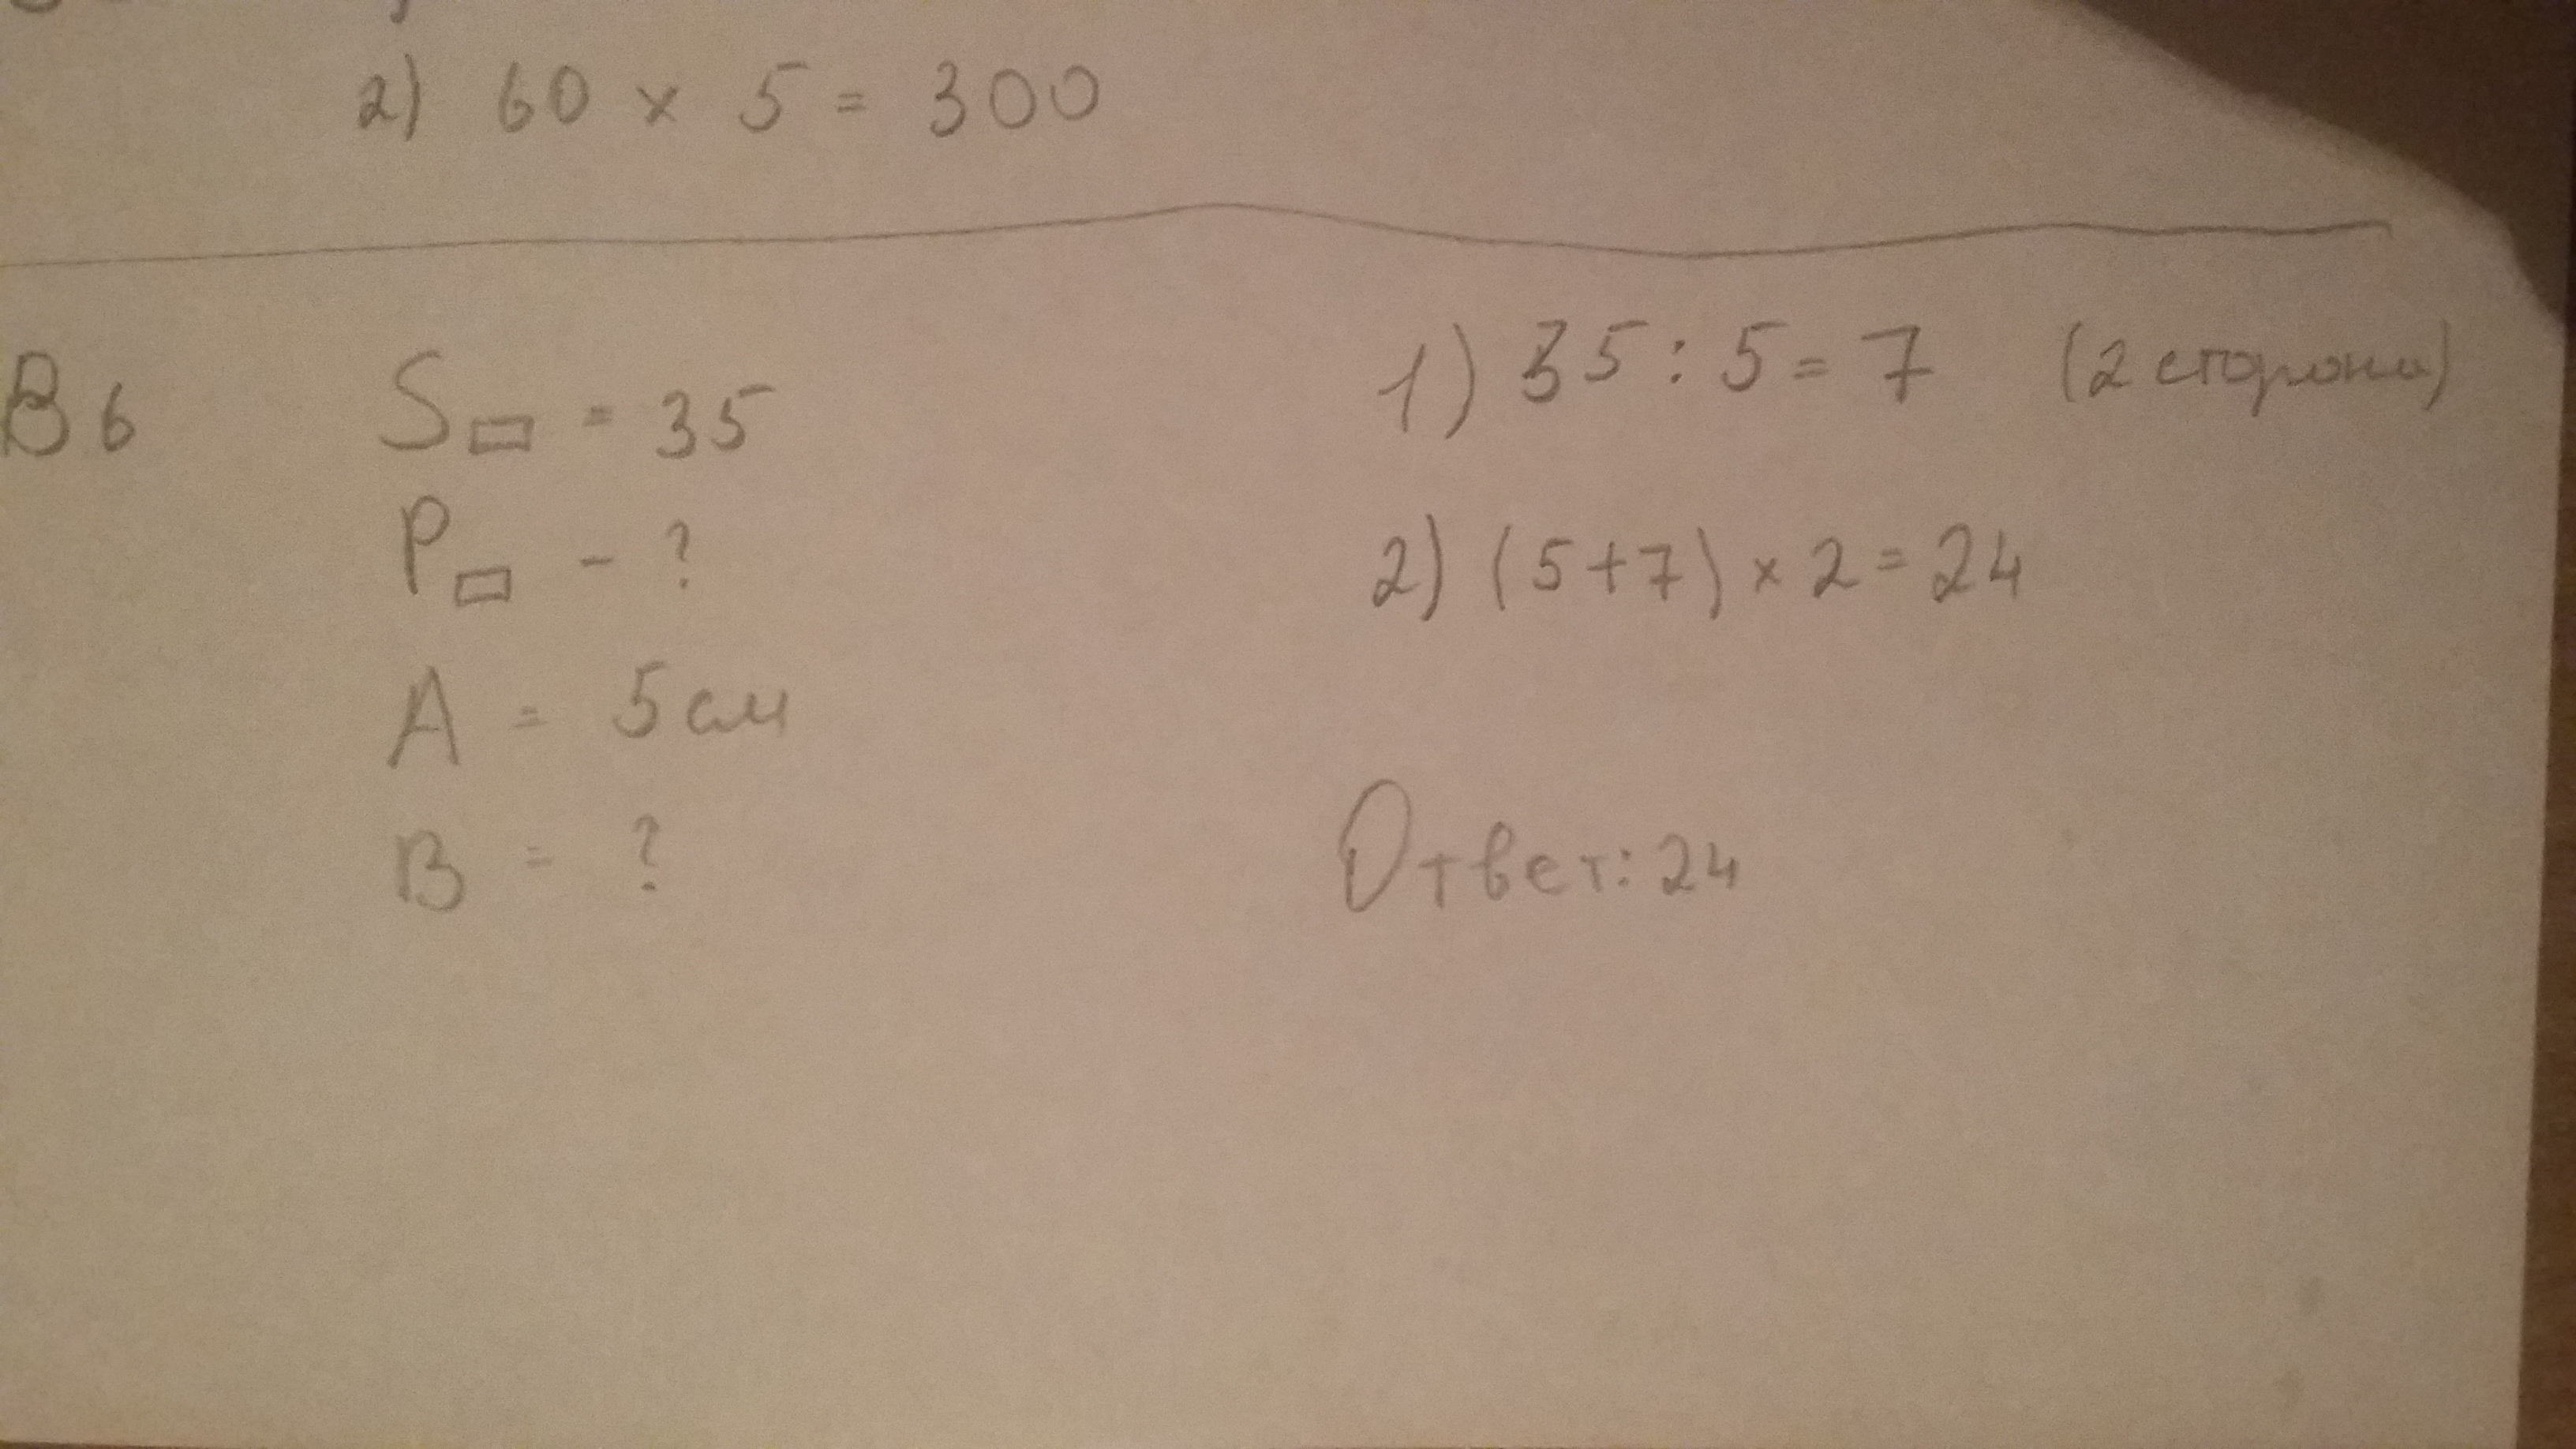 2) 60 x 5 = 300
B6
S▭ = 35
P▭ - ?
A = 5 см
B = ?
1) 35 : 5 = 7 (2 сторона)
2) (5+7) x 2 = 24
Ответ: 24